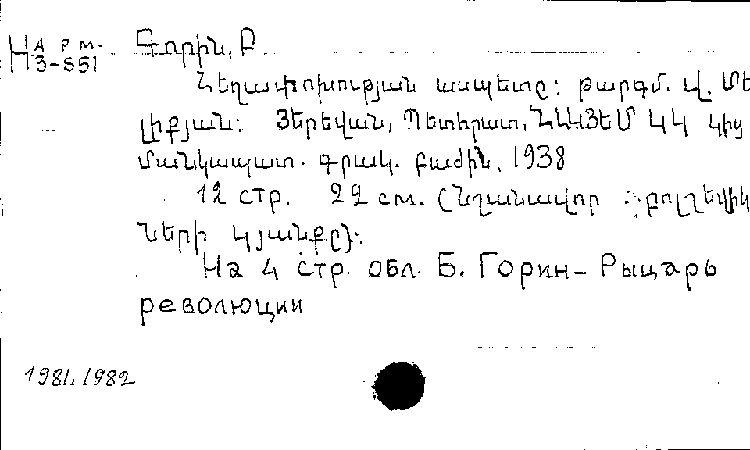 На рм.
3-851
Գորին, Բ.
Հեղափոխության ասպետը: թարգմ. Վ. Մե
լիքյան: Յերեվան, Պետհրատ, ՆԱՅԵՄ ԿԿ կից
մանկապատ. գրակ. բաժին, 1938
12 стр. 22 см. (Նշանավոր բոլշեվիկ
ների կյանքը):
На 4 стр. обл. Б. Горин- Рыцарь
революции
1981, 1982